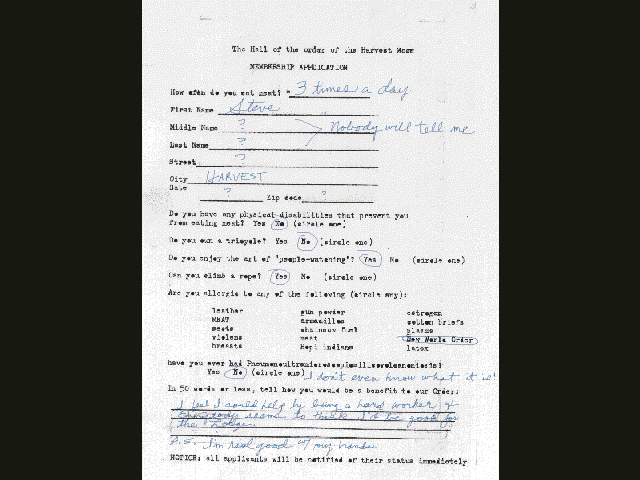 The Hall of the order of the Harvest Moon
MEMBERSHIP APPLICATION
How often do you eat meat? 3 times a day
First Name Steve
Middle Name ? Nobody will tell me
Last Name ?
Street ?
City HARVEST
State ? Zip code ?
Do you have any physical disabilities that prevent you
from eating meat? Yes No (circle one)
Do you own a tricycle? Yes No (circle one)
Do you enjoy the art of "people-watching"? Yes No (circle one)
Can you climb a rope? Yes No (circle one)
Are you allergic to any of the following (circle any):
leather gun powder estrogen
MEAT armadillos cotton briefs
meats chainsaw fuel plasma
violens meat New World Order
breasts Hopi indians latex
have you ever had
Yes No (circle one) I don't even know what it is!
In 50 words or less, tell how you would be a benefit to our Order:
I feel I could help by being a hard worker &
everybody seems to think I'd be good for
the Lodge.
P.S. I'm real good w/ my hands
NOTICE: all applicants will be notified of their status immediately